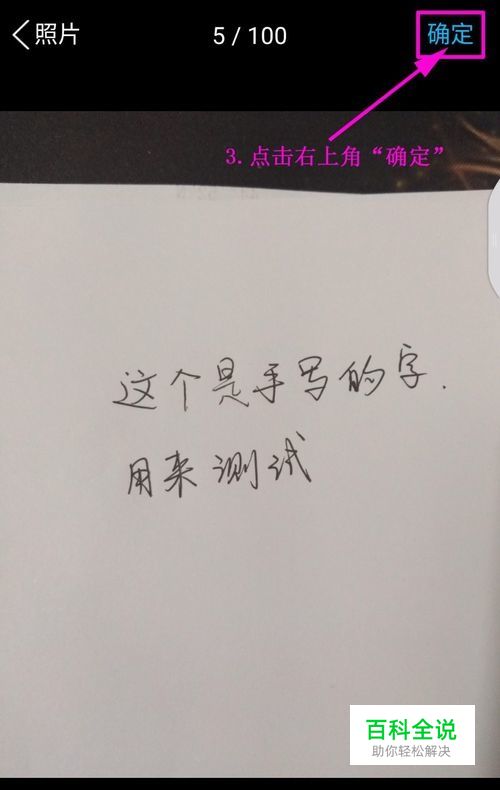 照片 5 / 100 确定
3.点击右上角“确定”
这个是手写的字.
用来测试
百科全说
助你轻松解决